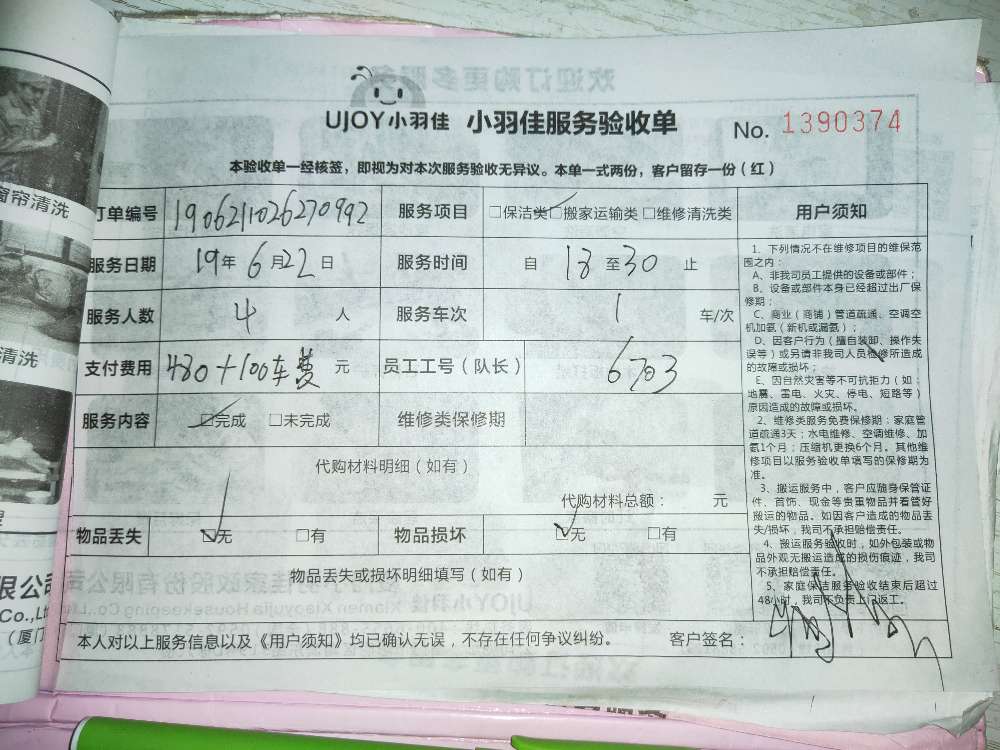 UJOY小羽佳 小羽佳服务验收单 No. 1390374
本验收单一经核签，即视为对本次服务验收无异议。本单一式两份，客户留存一份（红）
订单编号 190621102627092 服务项目 □保洁类 □搬家运输类 □维修清洗类 用户须知
服务日期 19年 6月22日 服务时间 自 18 至 30 止
服务人数 4 人 服务车次 1 车/次
支付费用 480+100车费 元 员工工号（队长） 6703
服务内容 □完成 □未完成 维修类保修期
代购材料明细（如有）
代购材料总额： 元
物品丢失 □无 □有 物品损坏 □无 □有
物品丢失或损坏明细填写（如有）
本人对以上服务信息以及《用户须知》均已确认无误，不存在任何争议纠纷。 客户签名：
1、下列情况不在维修项目的维保范
围之内：
A、非我司员工提供的设备或部件；
B、设备或部件本身已经超过出厂保
修期；
C、商业（商铺）管道疏通、空调空
机加氨（新机或漏氨）；
D、因客户行为（擅自装卸、操作失
误等）或另请非我司人员检修所造成
的故障或损坏；
E、因自然灾害等不可抗拒力（如：
地震、雷电、火灾、停电、短路等）
原因造成的故障或损坏。
2、维修类服务免费保修期：家庭管
道疏通3天；水电维修、空调维修、加
氨1个月；压缩机更换6个月。其他维
修项目以服务验收单填写的保修期为
准。
3、搬运服务中，客户应随身保管证
件、首饰、现金等贵重物品并看管好
搬运的物品。如因客户造成的物品丢
失/损坏，我司不承担赔偿责任。
4、搬运服务验收时，如外包装或物
品外观无搬运造成的损伤痕迹，我司
不承担赔偿责任。
5、家庭保洁服务验收结束后超过
48小时，我司不负责上门返工。
窗帘清洗
清洗
限公司
Co.,Lt
（厦门